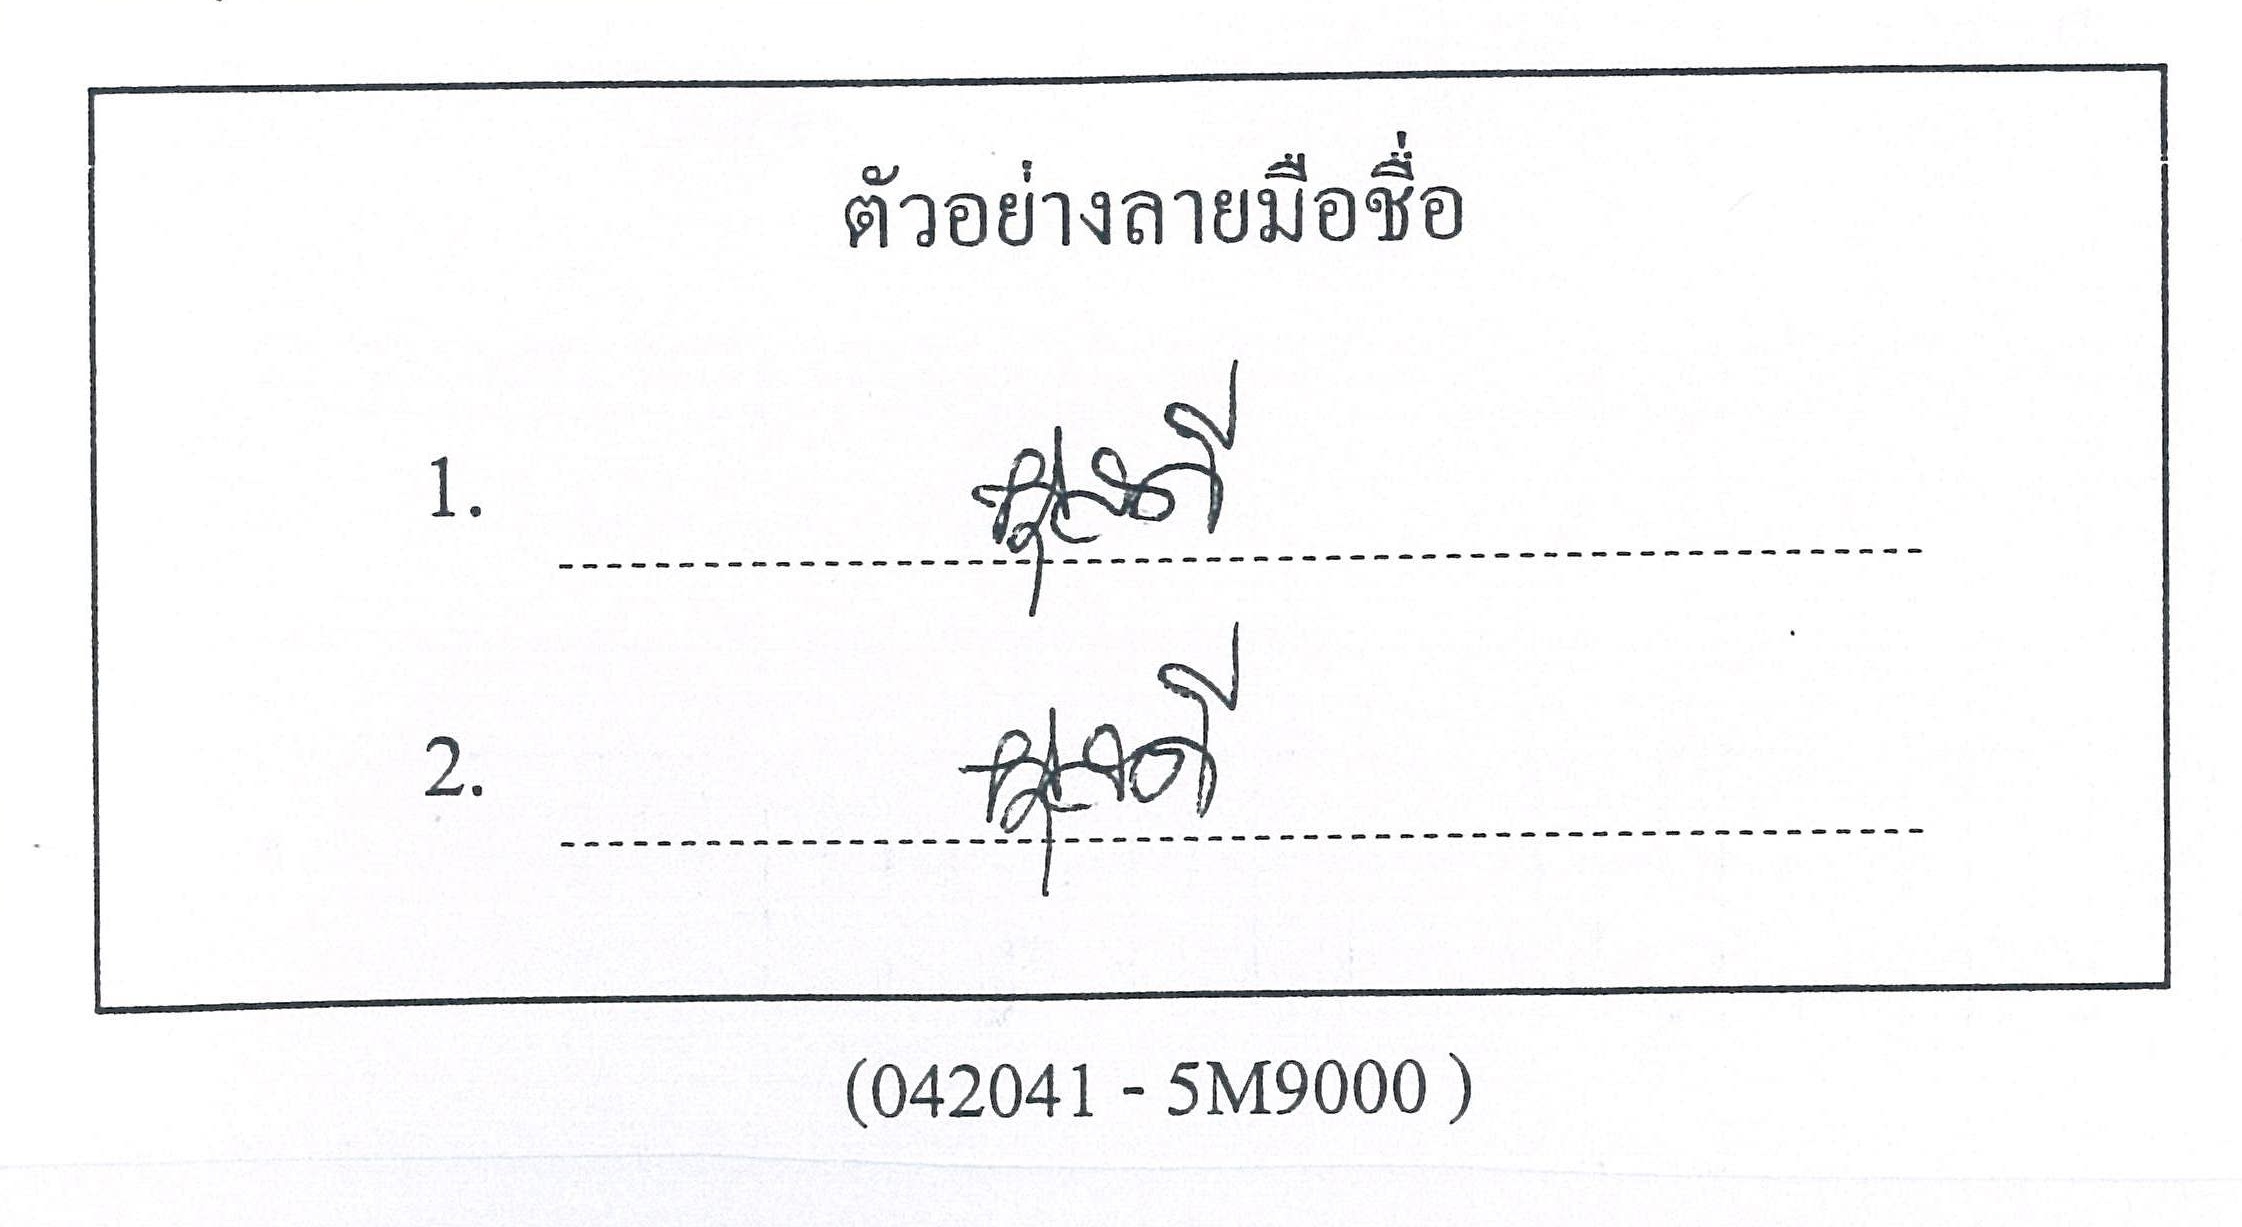 ตัวอย่างลายมือชื่อ
1.
2.
(042041 - 5M9000 )